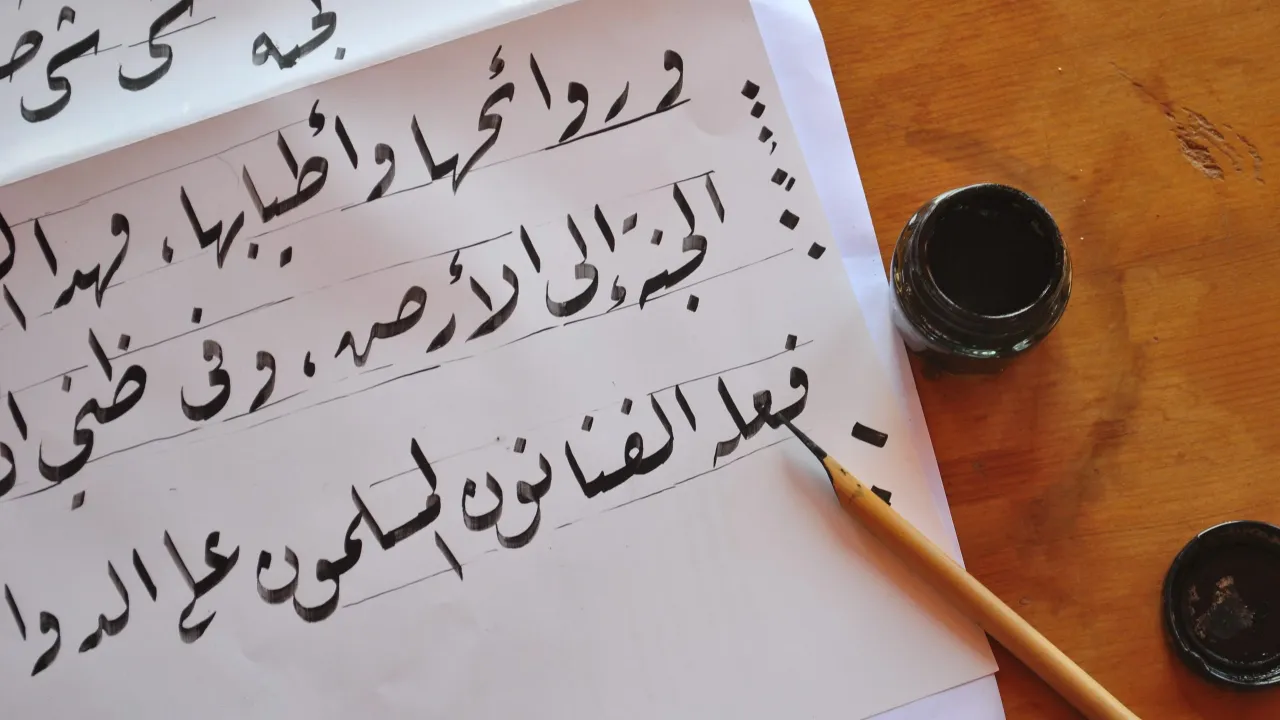 لجنه شى شى
و روائحها وأطيابها، فهذا
الجنة إلى الأرض، وفى ظنى
فعله الفنانون المسلمون على الدوا